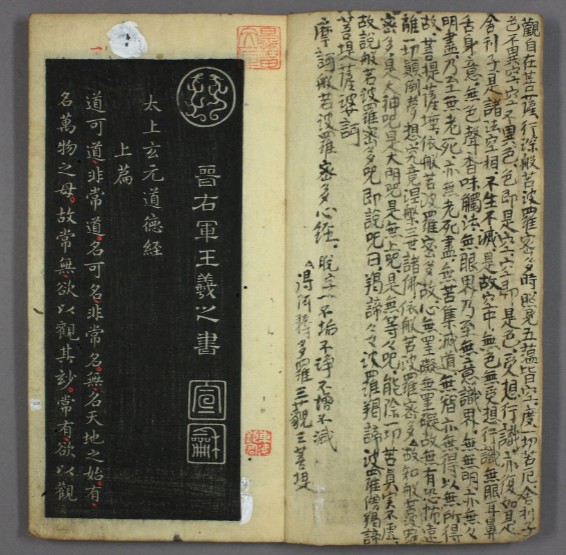 觀自在菩薩行深般若波羅密多時照見五蘊皆空度一切苦厄舍利子
色不異空空不異色色即是空空即是色受想行識亦復如是
舍利子是諸法空相不生不滅是故空中無色無受想行識無眼耳鼻
舌身意無色聲香味觸法無眼界乃至無意識界無無明亦無々
明盡乃至無老死亦無老死盡無苦集滅道無智亦無得以無所得
故菩提薩埵依般若波羅密多故心無罣礙無罣礙故無有恐怖遠
離一切顛倒夢想究竟涅槃三世諸佛依般若波羅密多故知般若波羅
密多是大神呪是大明呪是無上呪是無等々呪能除一切苦真實不虛
故說般若波羅密多呪即說呪曰揭諦々々波羅揭諦波羅僧揭諦
菩提薩婆訶
摩訶般若波羅密多心經 脫字一不垢不淨不增不減
得阿耨多羅三藐三菩提
晉右軍王羲之書
太上玄元道德經
上篇
道可道非常道名可名非常名無名天地之始有
名萬物之母故常無欲以觀其妙常有欲以觀